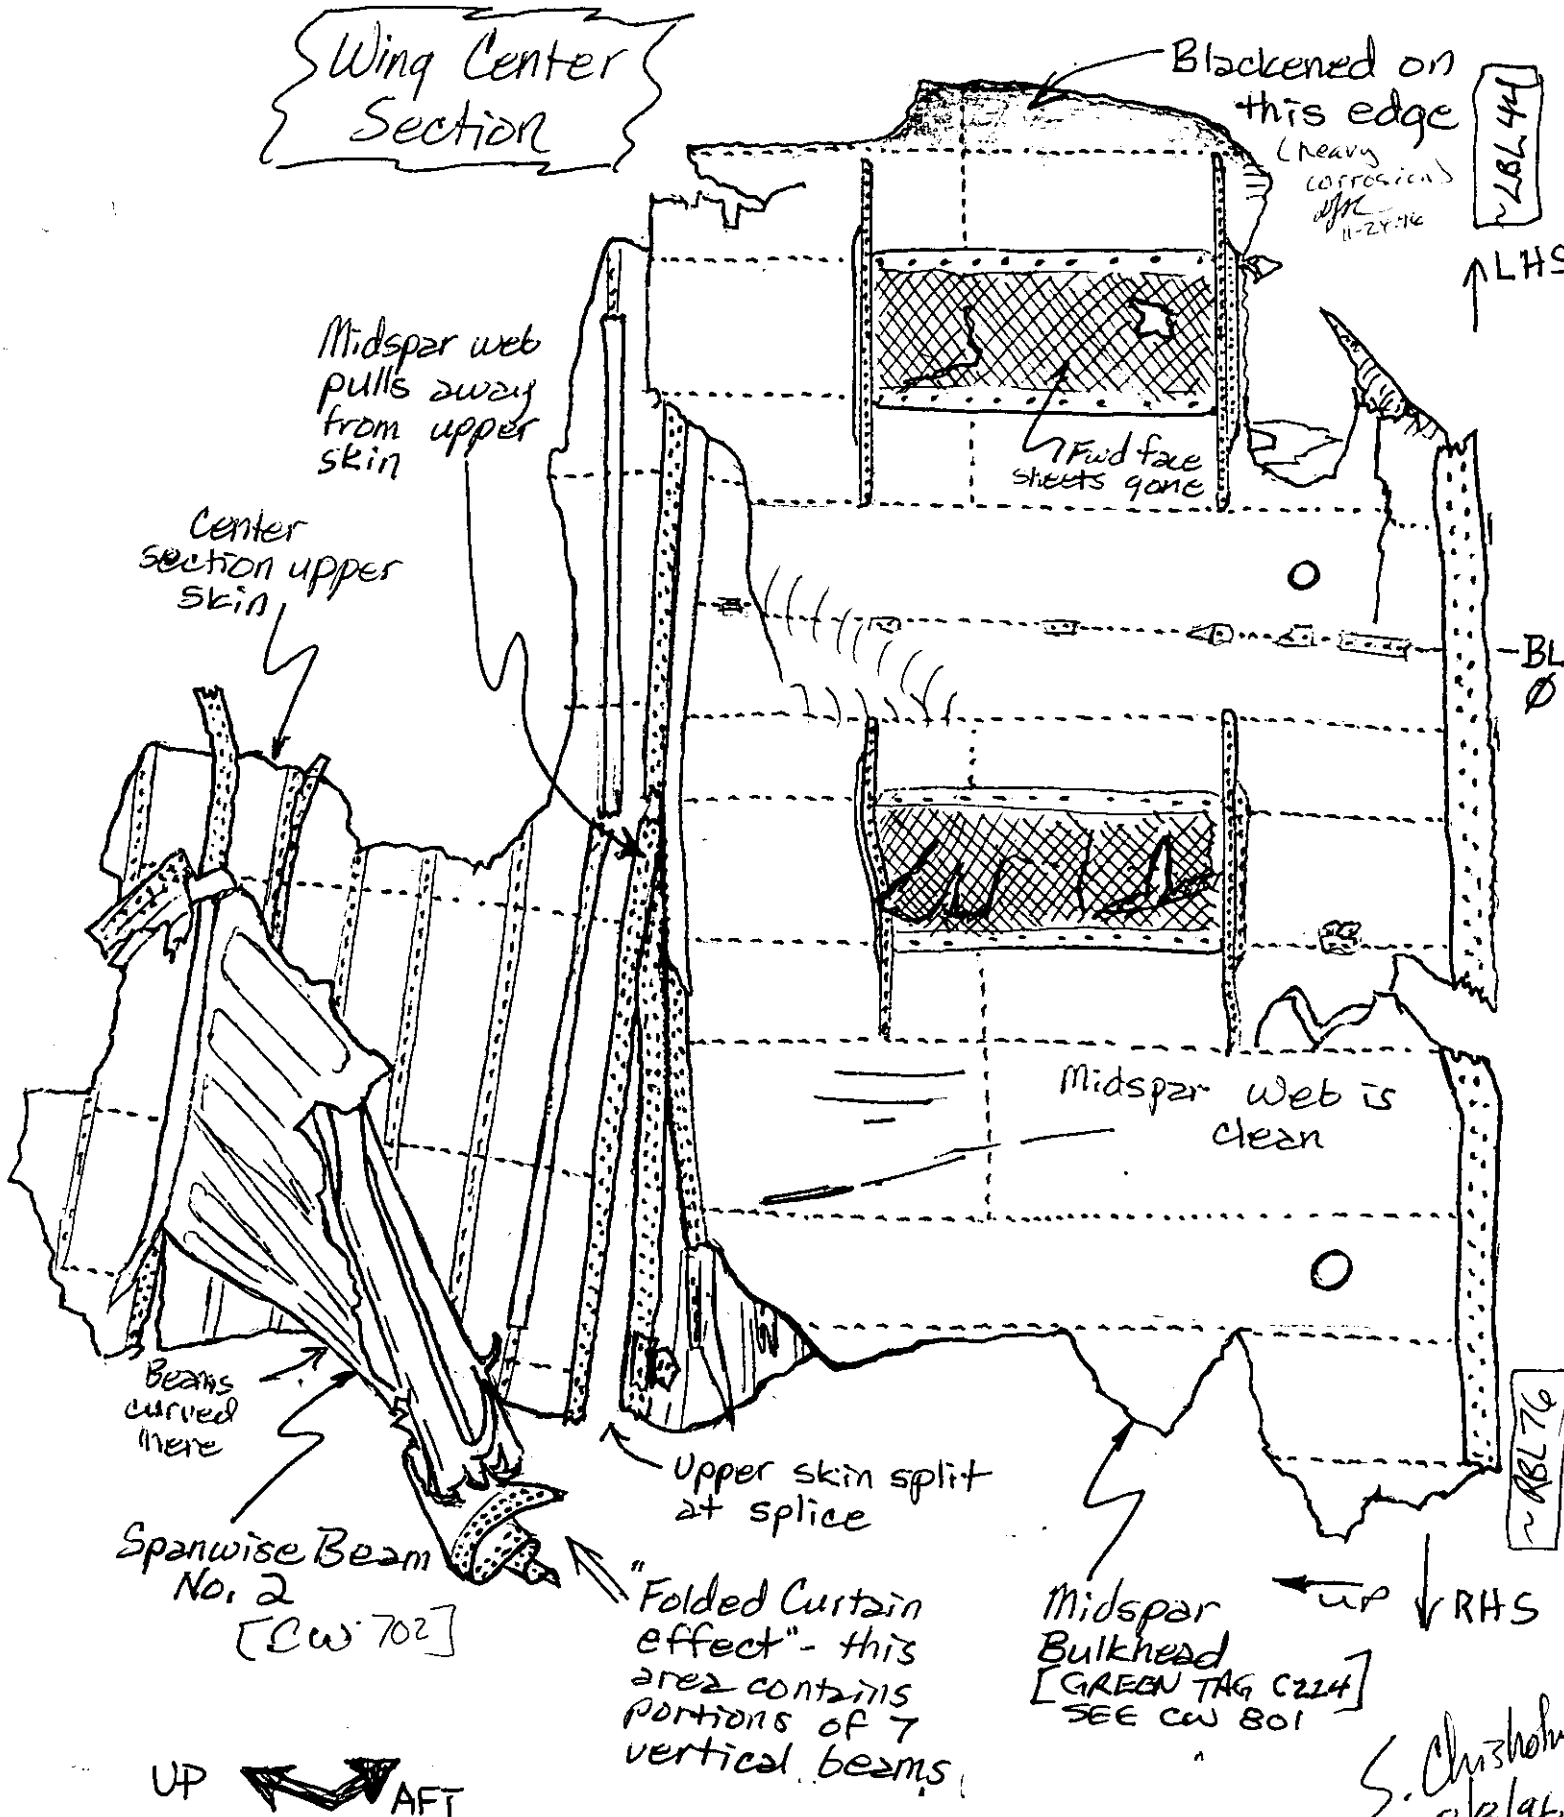 Wing Center
Section
Blackened on
this edge
(heavy
corrosion)
11-24-96
~LBL 44
↑ LHS
Midspar web
pulls away
from upper
skin
Fwd face
sheets gone
Center
section upper
skin
BL
Ø
Midspar Web is
clean
Beams
curved
here
Upper skin split
at splice
~RBL 76
Spanwise Beam
No. 2
[CW 702]
"Folded Curtain
effect" - this
area contains
portions of 7
vertical beams
Midspar
Bulkhead
[GREEN TAG C224]
SEE CW 801
← UP
↓ RHS
UP
AFT
S. Chisholm